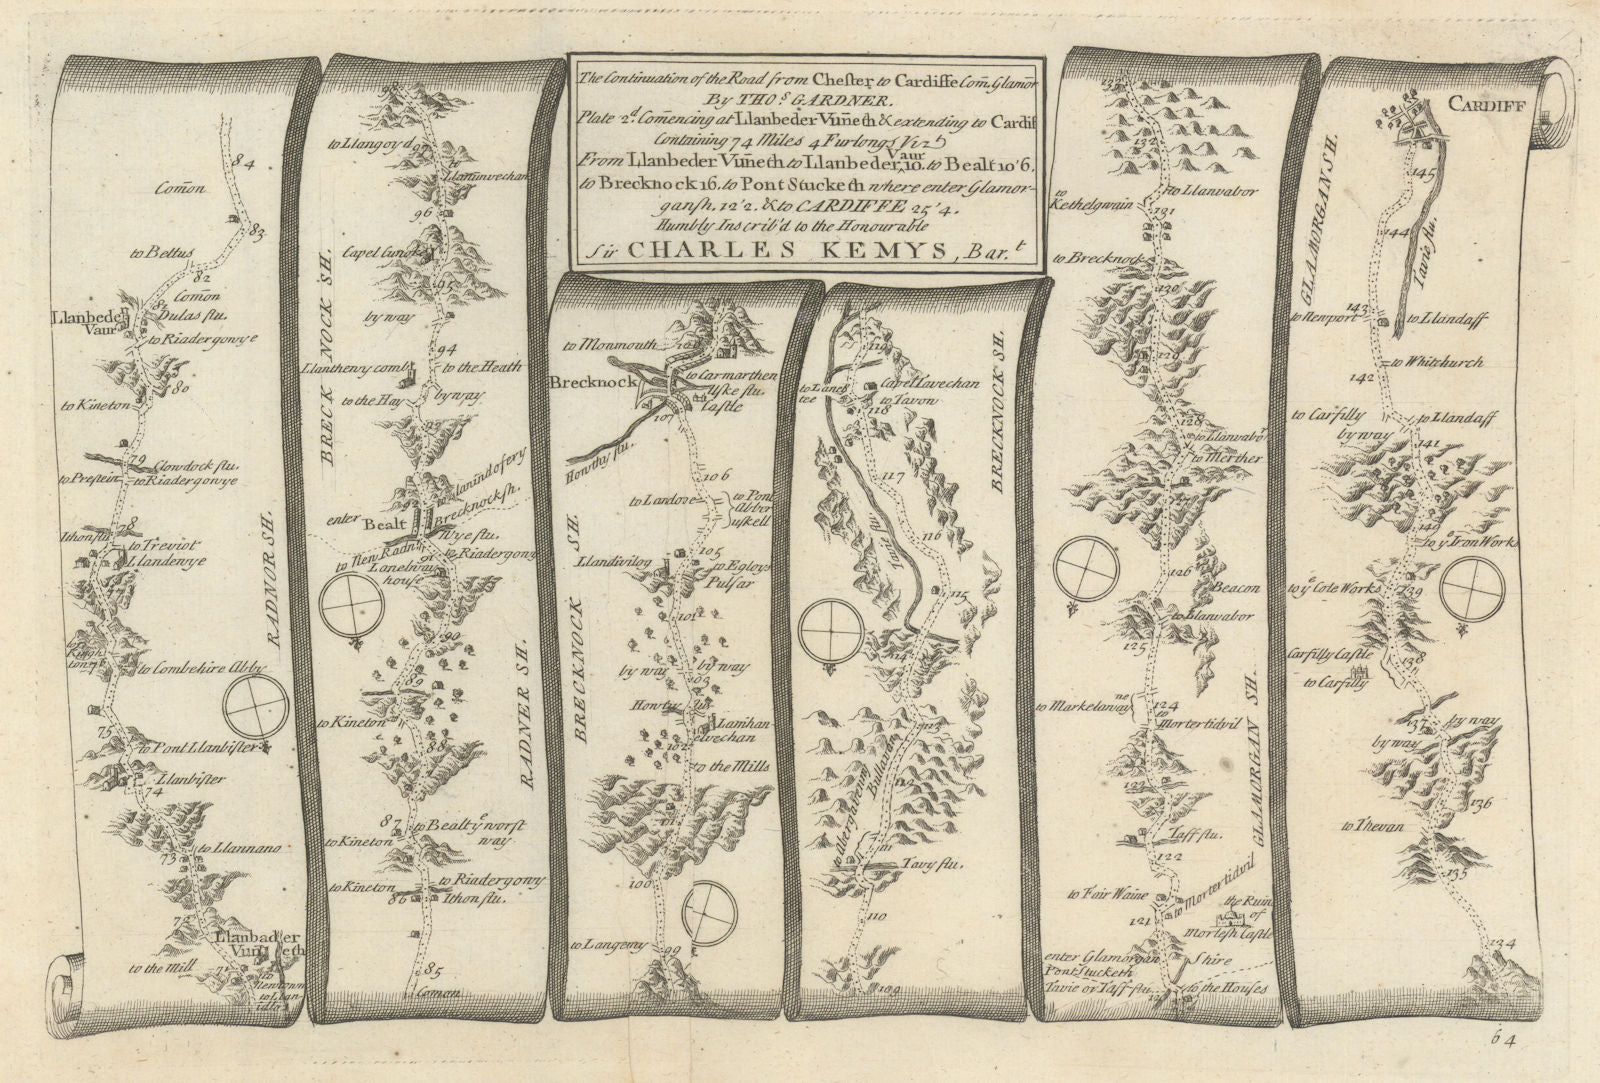 The Continuation of the Road from Chester to Cardiffe Com̄. Glamōr
By THO.s GARDNER.
Plate 2d. Com̄encing at Llanbeder Vum̄eth & extending to Cardif
Containing 74 Miles 4 Furlongs Viz.
From Llanbeder Vum̄eth to Llanbeder Vaur 10. to Bealt 10'6.
to Brecknock 16. to Pont Stucketh where enter Glamor-
gansh. 12'2. & to CARDIFFE 25'4.
Humbly Inscrib'd to the Honourable
Sir CHARLES KEMYS, Bar.t
84
Com̄on
83
to Bettus
82
Com̄on
81
Dulas flu.
Llanbede
Vaur
to Riadergowye
80
to Kineton
79
Clowdock flu.
to Prestein
to Riadergowye
78
Ithon flu
to Treviot
Llandewye
77
RADNOR SH.
to Combehire Abby
75
to Pont Llanbister
Llanbister
74
to Llannano
73
72
Llanbader
Vum̄eth
to the Mill
71
to Newtown
98
to Llangoyd
97
to Llanunvechan
96
BRECKNOCK SH.
95
by way
94
Llanthenry comb
to the Heath
to the Hay
by way
93
to Lanindofery
92
enter
Brecknocksh.
Bealt
Wye flu.
to New Radnor
to Riadergowy
Lanelway
house
90
89
to Kineton
88
RADNER SH.
87
to Bealt ye worst
way
to Kineton
to Kineton
to Riadergowy
86
Ithon flu.
85
Com̄on
108
to Monmouth
Brecknock
to Carmarthen
Uske flu.
Castle
107
Howthy flu.
106
to Landore
to Pont
Abber
uskell
105
Llandivilog
to Egloys
Pulsar
BRECKNOCK SH.
by way
by way
103
Howthy flu
Lamhan
elvechan
102
to the Mills
101
100
to Langemy
99
119
BRECKNOCK SH.
Capel Tavechan
to Lanes
tee
to Tavon
118
117
116
Tave flu
115
114
113
112
to Abergavenny
111
Tavy flu.
110
109
133
132
to Llanvabor
to
Kethelgwain
131
to Brecknock
130
129
128
to Llanvabor
to Merther
127
126
Beacon
to Blanvabor
125
124
to Marketaway
to
Mortertidvil
GLAMORGAN SH.
123
Taff flu.
122
to Mortertidvil
to Fair Waine
the Ruin
of
Morlesh Castle
121
enter Glamorgan Shire
Pont Stucketh
Tavie or Taff flu
to the Houses
120
CARDIFF
GLAMORGANSH.
145
144
Tavie flu.
143
to Newport
to Llandaff
to Whitchurch
142
to Carfilly
to Llandaff
by way
141
140
to ye Iron Works
to ye Cote Works
139
Carfilly Castle
138
to Carfilly
137
by way
by way
136
to Thevan
135
134
64